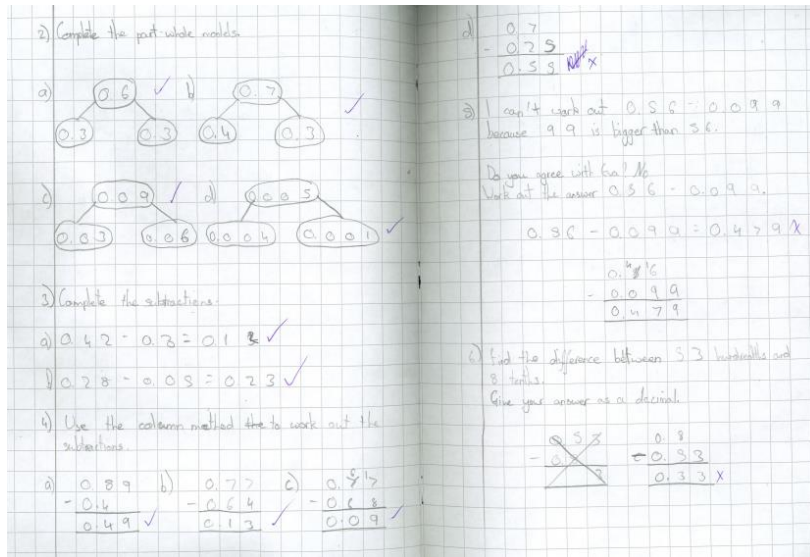 2) Complete the part-whole models.
a) 0.6 b) 0.7
0.3 0.3 0.4 0.3
c) 0.09 d) 0.005
0.03 0.06 0.004 0.001
3) Complete the subtractions.
a) 0.42 - 0.3 = 0.12
b) 0.28 - 0.05 = 0.23
4) Use the column method to work out the
subtractions.
a) 0.89 b) 0.77 c) 0.77
- 0.4 - 0.64 - 0.68
0.49 0.13 0.09
d 0.7
- 0.25
0.55 x
5) I can't work out 0.56 - 0.099
because 99 is bigger than 56.
Do you agree with Eva? No
Work out the answer 0.56 - 0.099.
0.56 - 0.099 = 0.479 x
0.56
- 0.099
0.479
6) Find the difference between 53 hundredths and
8 tenths.
Give your answer as a decimal.
0.53 0.8
- 0. - 0.53
0.33 x